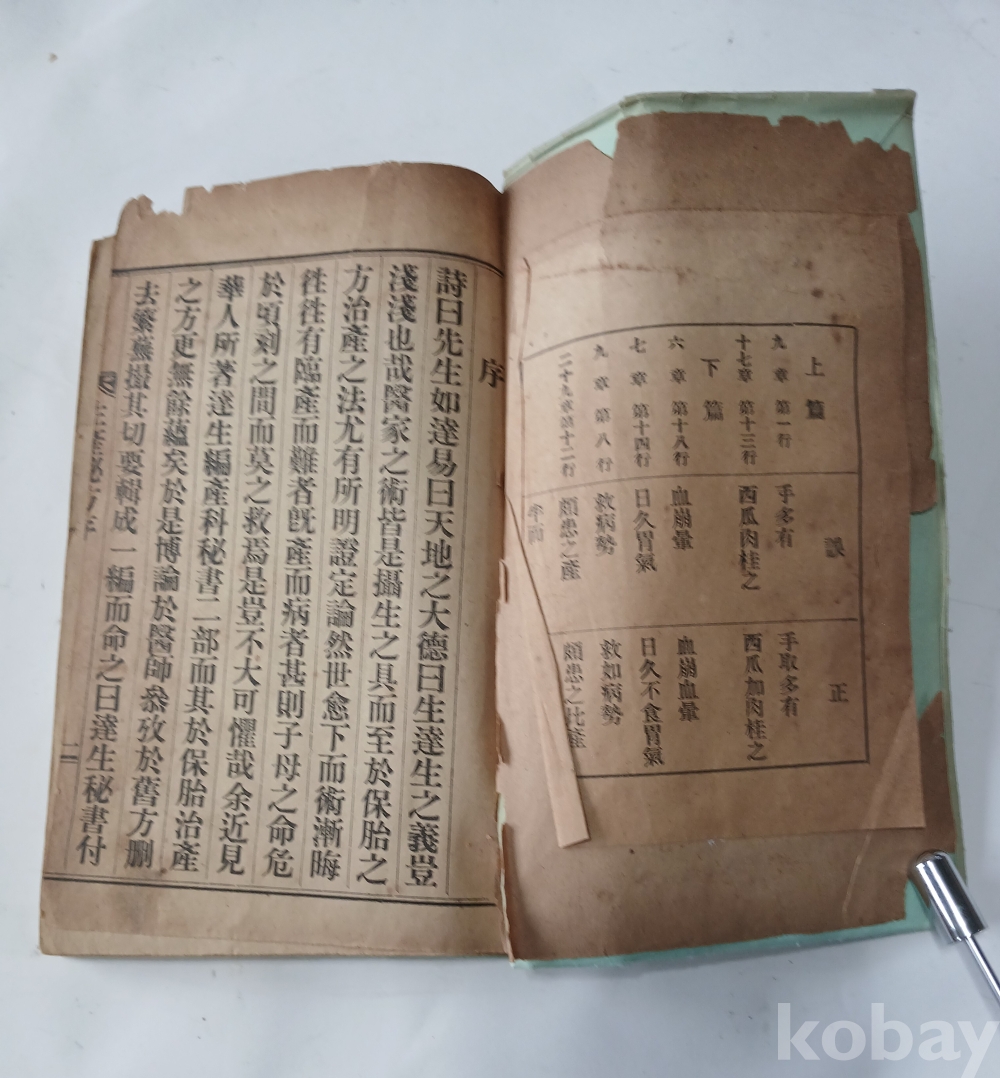 上篇
誤
正
九章 第一行 手多有 手取多有
十七章 第十三行 西瓜肉桂之 西瓜加肉桂之
下篇
六章 第十八行 血崩暈 血崩血暈
七章 第十四行 日久胃氣 日久不食胃氣
九章 第八行 救病勢 救如病勢
二十九章第十二行 頗患之產
序
詩曰先生如達易曰天地之大德曰生達生之義豈
淺淺也哉醫家之術皆是攝生之具而至於保胎之
方治產之法尤有所明證定論然世愈下而術漸晦
徃徃有臨產而難者旣產而病者甚則子母之命危
於頃刻之間而莫之救焉是豈不大可懼哉余近見
華人所著達生編產科秘書二部而其於保胎治產
之方更無餘蘊矣於是博論於醫師叅攷於舊方刪
去繁蕪撮其切要輯成一編而命之曰達生秘書付
二
kobay